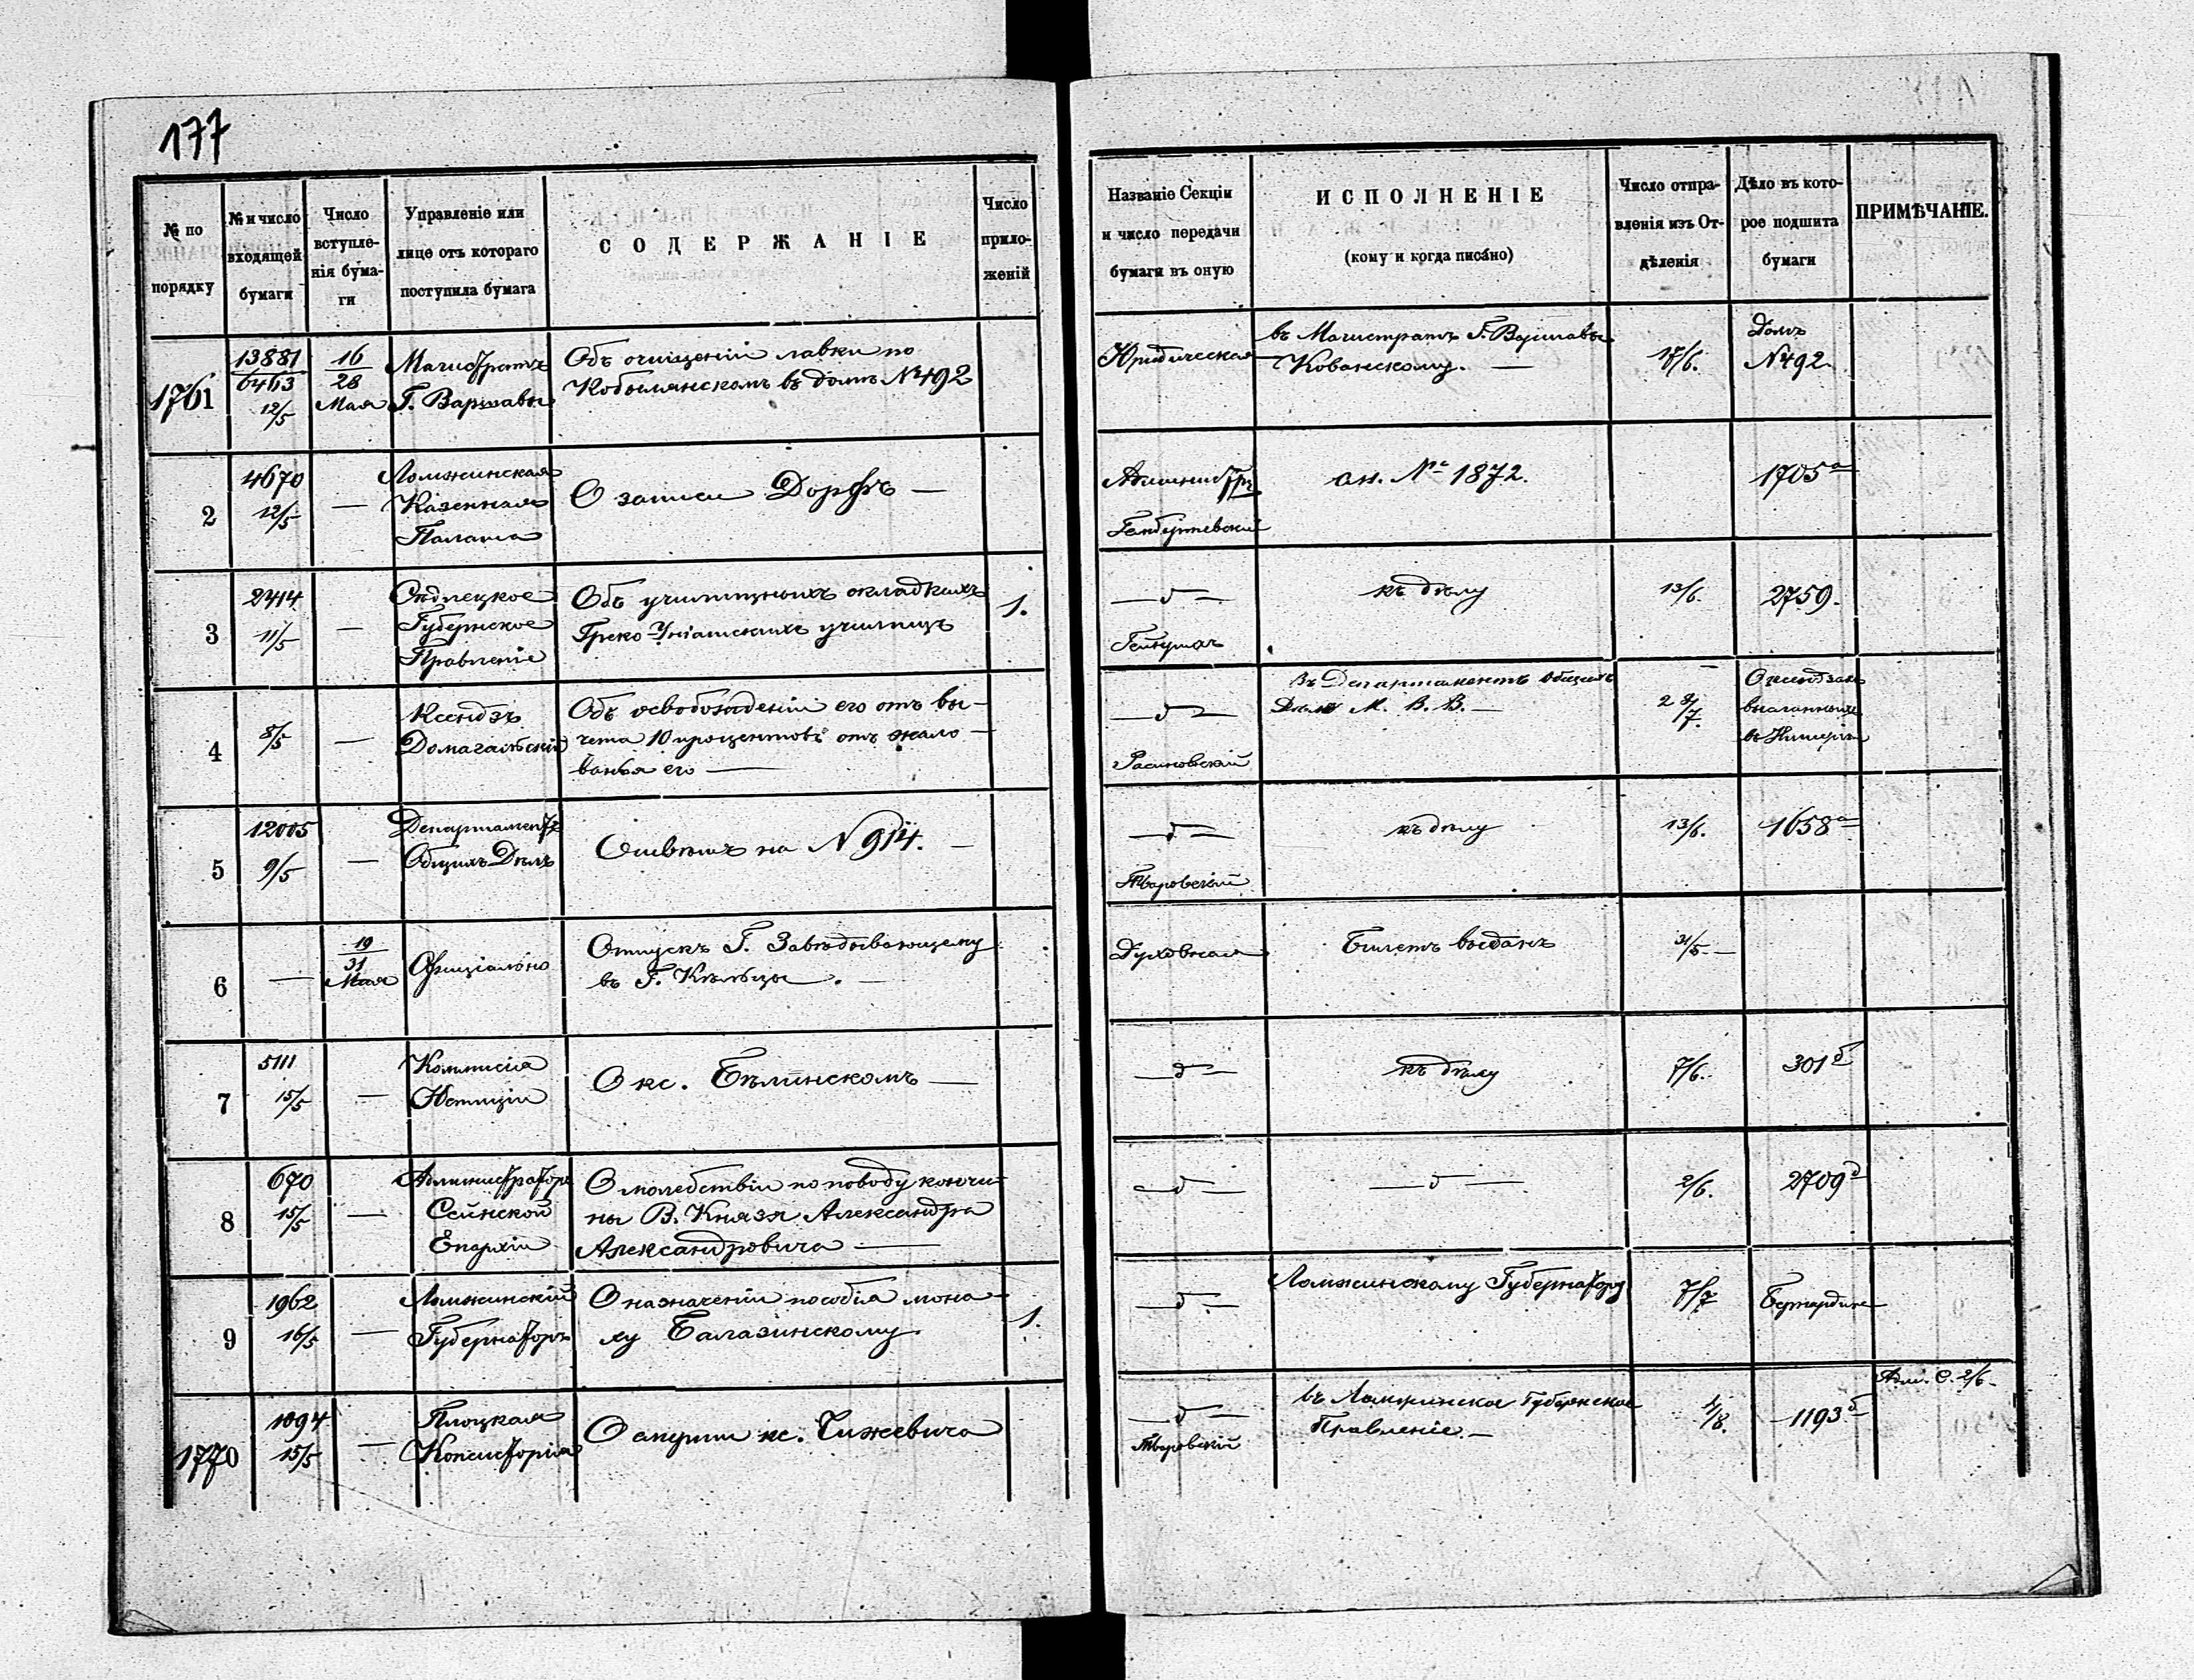 177
№ по порядку
№ и число входящей бумаги
Число вступле-нія бума-ги
Управленіе или лице отъ котораго поступила бумага
СОДЕРЖАНІЕ
Число прило-женій
Названіе Секціи и число передачи бумаги въ оную
ИСПОЛНЕНІЕ
(кому и когда писано)
Число отпра-вленія изъ От-дѣленія
Дѣло въ кото-рое подшита бумаги
ПРИМѢЧАНІЕ.
1761
13881
6463
12/5
16
28
Мая
Магистратъ
Г. Варшавы
Объ очищеніи лавки по
Кобылянскомъ въ домѣ №492
Юридическая
въ Магистратъ Г. Варшавы
Кованскому. —
17/6.
Домъ
N492.
2
4670
12/5
—
Ломжинская
Казенная
Палата
О записи Дорфъ —
ан. № 1872.
1705а
3
2414
11/5
—
Сѣдлецкое
Губернское
Правленіе
Объ училищныхъ складкахъ
Греко Уніатскихъ училищъ
1.
— д —
къ дѣлу
13/6.
2759.
4
8/5
—
Ксендзъ
Домагальскій
Объ освобожденіи его отъ вы-
чета 10 процентовъ отъ жало-
ванья его —
— д —
Расиновскій
Въ Департаментъ Общихъ
Дѣлъ М. В. В. —
О ксендзахъ
высланныхъ
въ Имперію
5
12005
9/5
—
Департаментъ
Общихъ Дѣлъ
Отвѣтъ на N 914. —
— д —
Тваровскій
къ дѣлу
13/6.
1658а
6
—
19
31
Мая
Офиціально
Отпускъ Г. Завѣдывающему
въ Г. Кѣльцы. —
Духовная
Билетъ выданъ
31/5 —
7
5111
15/5
—
Коммисія
Юстиціи
О кс. Бѣлинскомъ —
— д —
къ дѣлу
7/6.
301б
8
670
15/5
—
Администраторъ
Сейнской
Епархіи
О молебствіи по поводу кончи-
ны В. Князя Александра
Александровича —
— д —
— д —
2/6.
2709д
9
1962
16/5
—
Ломжинскій
Губернаторъ
О назначеніи пособія мона-
ху Балазинскому.
1.
— д —
Ломжинскому Губернатору
7/7
Бернардине
1770
1094
15/5
—
Плоцкая
Консисторія
О смерти кс. Чижевича
— д —
Тваровскій
въ Ломжинское Губернское
Правленіе. —
1/8.
1193б
Адм. С. 2/6.